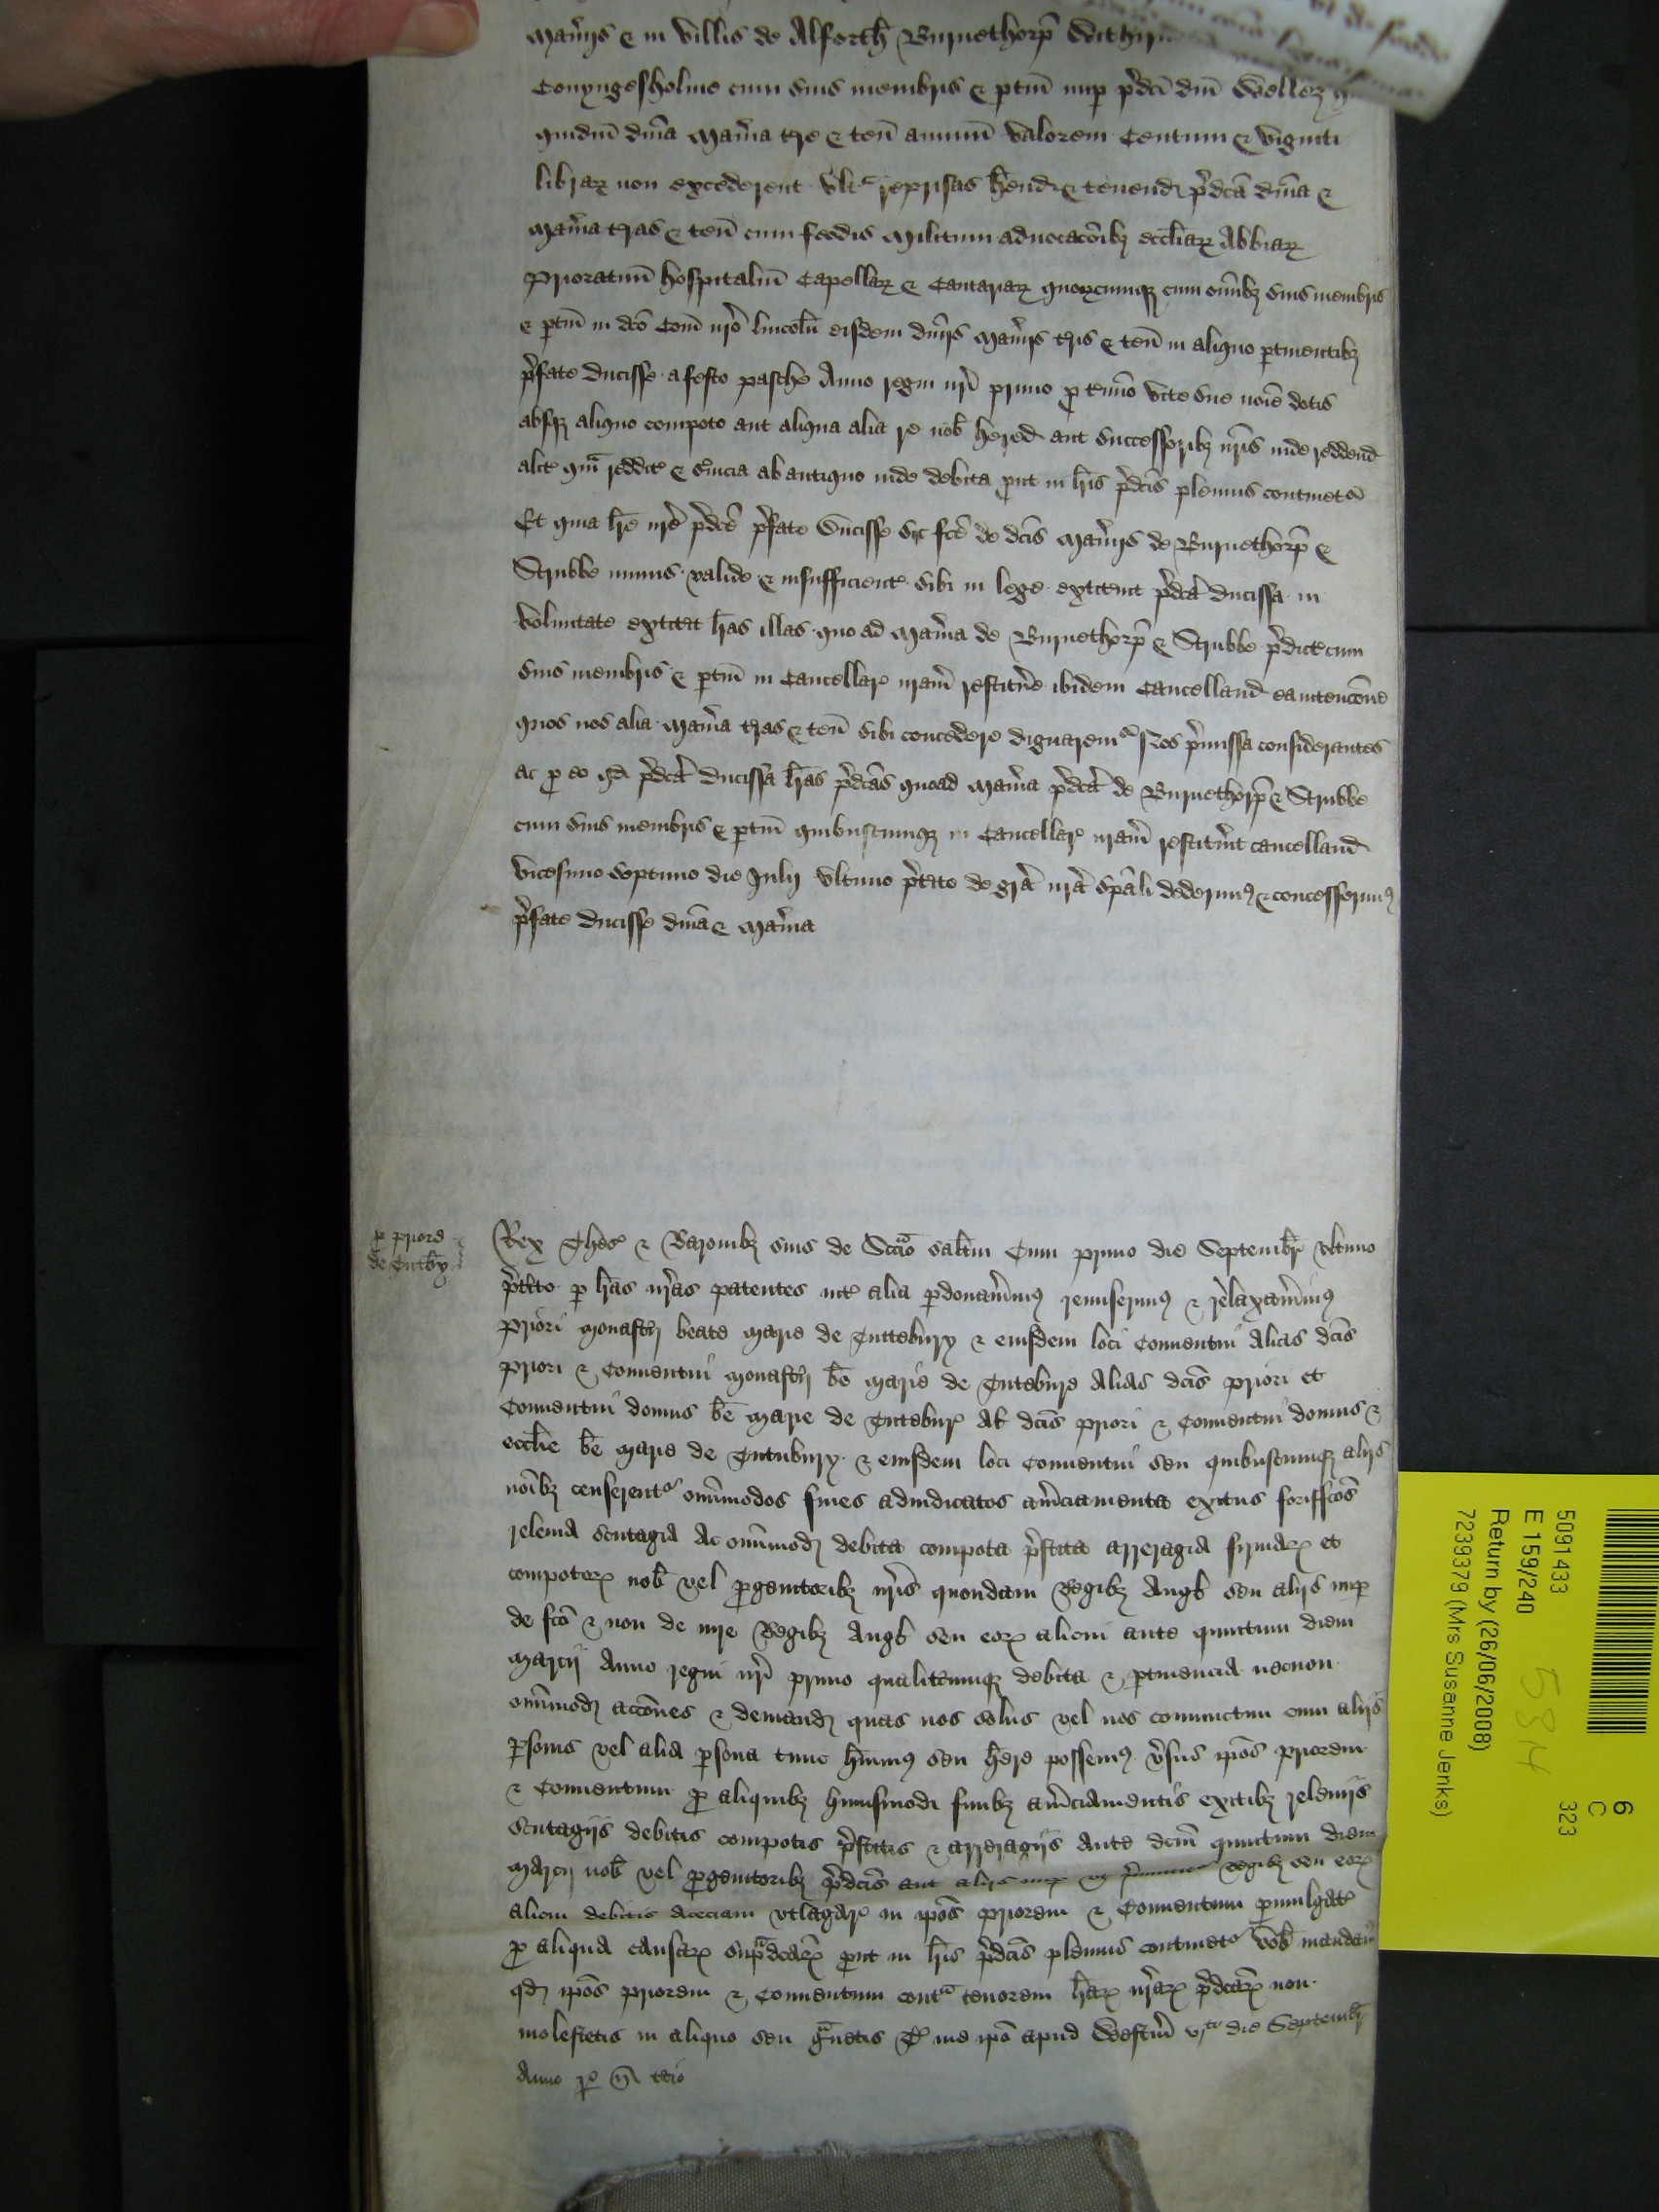 Mañijs & in villis de Alforth Burnethorp̄ Withyn
Conyngesholme cum suis membris & ptiñ nup p̄dc̄i dñi Welleʒ
quidm̄ dñia mañia tre & teñ annuū valorem Centum & viginti
librar non excederent vltᵃ reprisas h̄end & tenend p̄dc̄a dñia &
mañia tras & teñ cum feodis militum aduocac̄oibʒ eccliar Abbiar
Prioratuū hospitaliū Capellar & Cantariar quorcumqʒ cum om̄ibʒ suis membris
& ptiñ in dc̄o Com̄ nr̄o lincolñ eisdem dñijs mañijs tris & teñ in aliquo ptinentibʒ
p̄fate ducisse a festo pasche Anno regni nr̄i primo p̱ tmīno vite sue noīe dotis
absqʒ aliquo compoto aut aliqua alia re nob̄ hered aut successoribʒ nr̄is inde reddend
alitʳ qm̄ reddit & sȓuicia ab antiquo inde debita put in lr̄is p̄dc̄is plenius continetʳ
Et quia lr̄e nr̄e p̄dc̄e p̄fate Ducisse sic fc̄e de dc̄is mañijs de Burnethorp̄ &
Strubbe minus valide & insufficient sibi in lege extitent p̄dc̄a ducissa in
voluntate extitit lr̄as illas quo ad mañia de Burnethorp̄ & Strubbe p̄dict cum
suis membris & ptiñ in Cancellar nr̄am restitūe ibidem Cancelland ea intenc̄one
quos nos alia mañia tras & teñ sibi concedere dignarem̄ Nos p̄missa considerantes
ac p̱ eo qd p̄dc̄a ducissa lr̄as p̄dc̄as quoad mañia p̄dc̄a de Burnethorp̄ & Strubbe
cum suis membris & ptiñ quibuscumqʒ in Cancellar nr̄am restituit cancelland
vicesimo septimo die Julij vltimo p̄tito de gr̄a nr̄a sp̄ali dedimus & concessimus
p̄fate ducisse dñia & mañia
p̱ priore
de Tutb̄y
Rex Thes & Baronibʒ suis de Sccᵃio salt̄m Cum primo die Septembr vltimo
p̄tito p lr̄as nr̄as patentes intʳ alia pdonauīmus remisimus & relaxauīmus
priori monastʳij beate marie de Tuttebury & eiusdem loci Conuentui alias dc̄is
priori & Conuentui monastʳij b̄e marie de Tutebure alias dc̄is priori et
Conuentui domus b̄e marie de Tutebur al̄ dc̄is priori & Conuentui domus &
ecclie b̄e marie de Tutubury & eiusdem loci Conuentui seu quibuscumqʒ alijs
noībʒ censerentʳ omīmodos fines adiudicatos am̄ciamenta exitus forisfc̄os
releuia scutagia ac omīmod debita compota p̄stita arreragia firmar et
compotor nob̄ vel p̱genitoribʒ nr̄is quondam Regibʒ Angl̄ seu alijs nup
de fc̄o & non de iure Regibʒ Angl̄ seu eor alicui ante quintum diem
marcij Anno regni nr̄i primo qualitcumqʒ debita & ptinencia necnon
omīmod acc̄ones & demand quas nos solus vel nos coniunctim cum alijs
psonis vel alia psona tunc h̄uimus seu h̄ere possemus v̄sus ip̄os priorem
& Conuentum p̱ aliquibʒ huiusmodi finibʒ am̄ciamentis exitibʒ releuijs
scutagijs debitis compotis p̄stitis & arreragijs ante dc̄m quintum diem
marcij nob̄ vel p̱genitoribʒ p̄dc̄is aut alijs nup vt p̄mittitʳ Regibʒ seu eor
alicui debitis aceciam vtlagar in ip̄os priorem & Conuentum p̱mulgat
p̱ aliqua causar supᵃdc̄ar put in lr̄is p̄dc̄is plenius continetʳ vob̄ mandam̄
qd ip̄os priorem & Conuentum contᵃ tenorem lr̄ar nr̄ar p̄dc̄ar non
molestetis in aliquo seu gᵃuetis T me ip̄o apud Westm̄ vjᵗᵒ die Septembr
Anno rʳ n̄ tcio
5091433
E 159/240
Return by (26/06/2008)
7239379 (Mrs Susanne Jenks)
6
C
323
5814